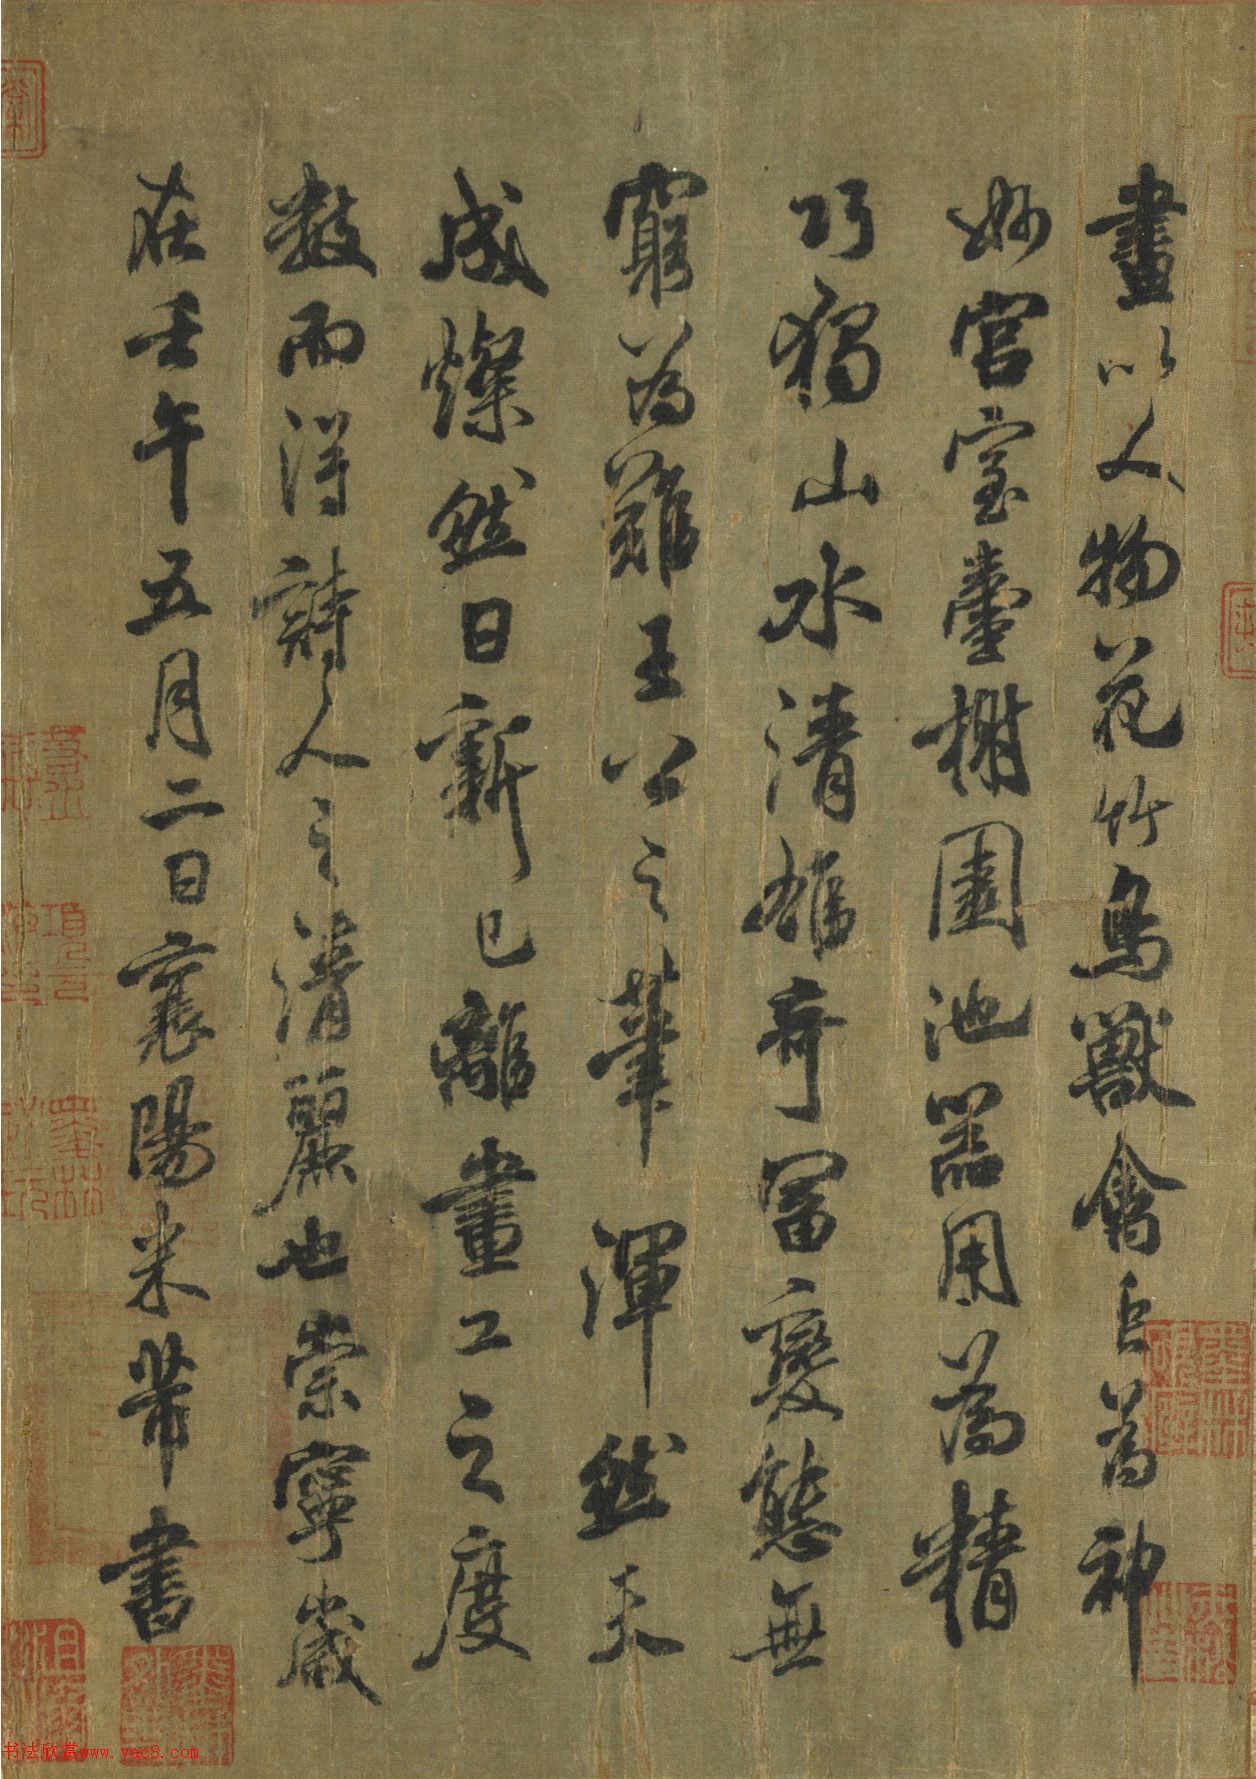 畫以人物花竹鳥獸禽虫為神
妙宮室臺榭園池器用為精
巧獨山水清雄奇富變態無
窮為難王公之筆渾然天
成燦然日新已離畫工之度
數而得詩人之清麗也崇寧歲
在壬午五月二日襄陽米芾書
书法欣赏www.yac8.com